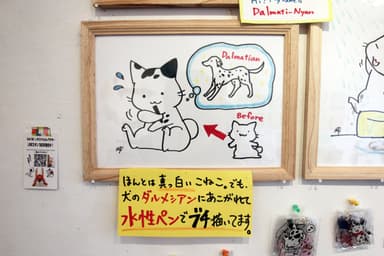 Dalmati-Nyaon
Dalmatian
Before
ほんとは真っ白いこねこ。でも、
犬のダルメシアンにあこがれて
水性ペンでブチ描いてます。